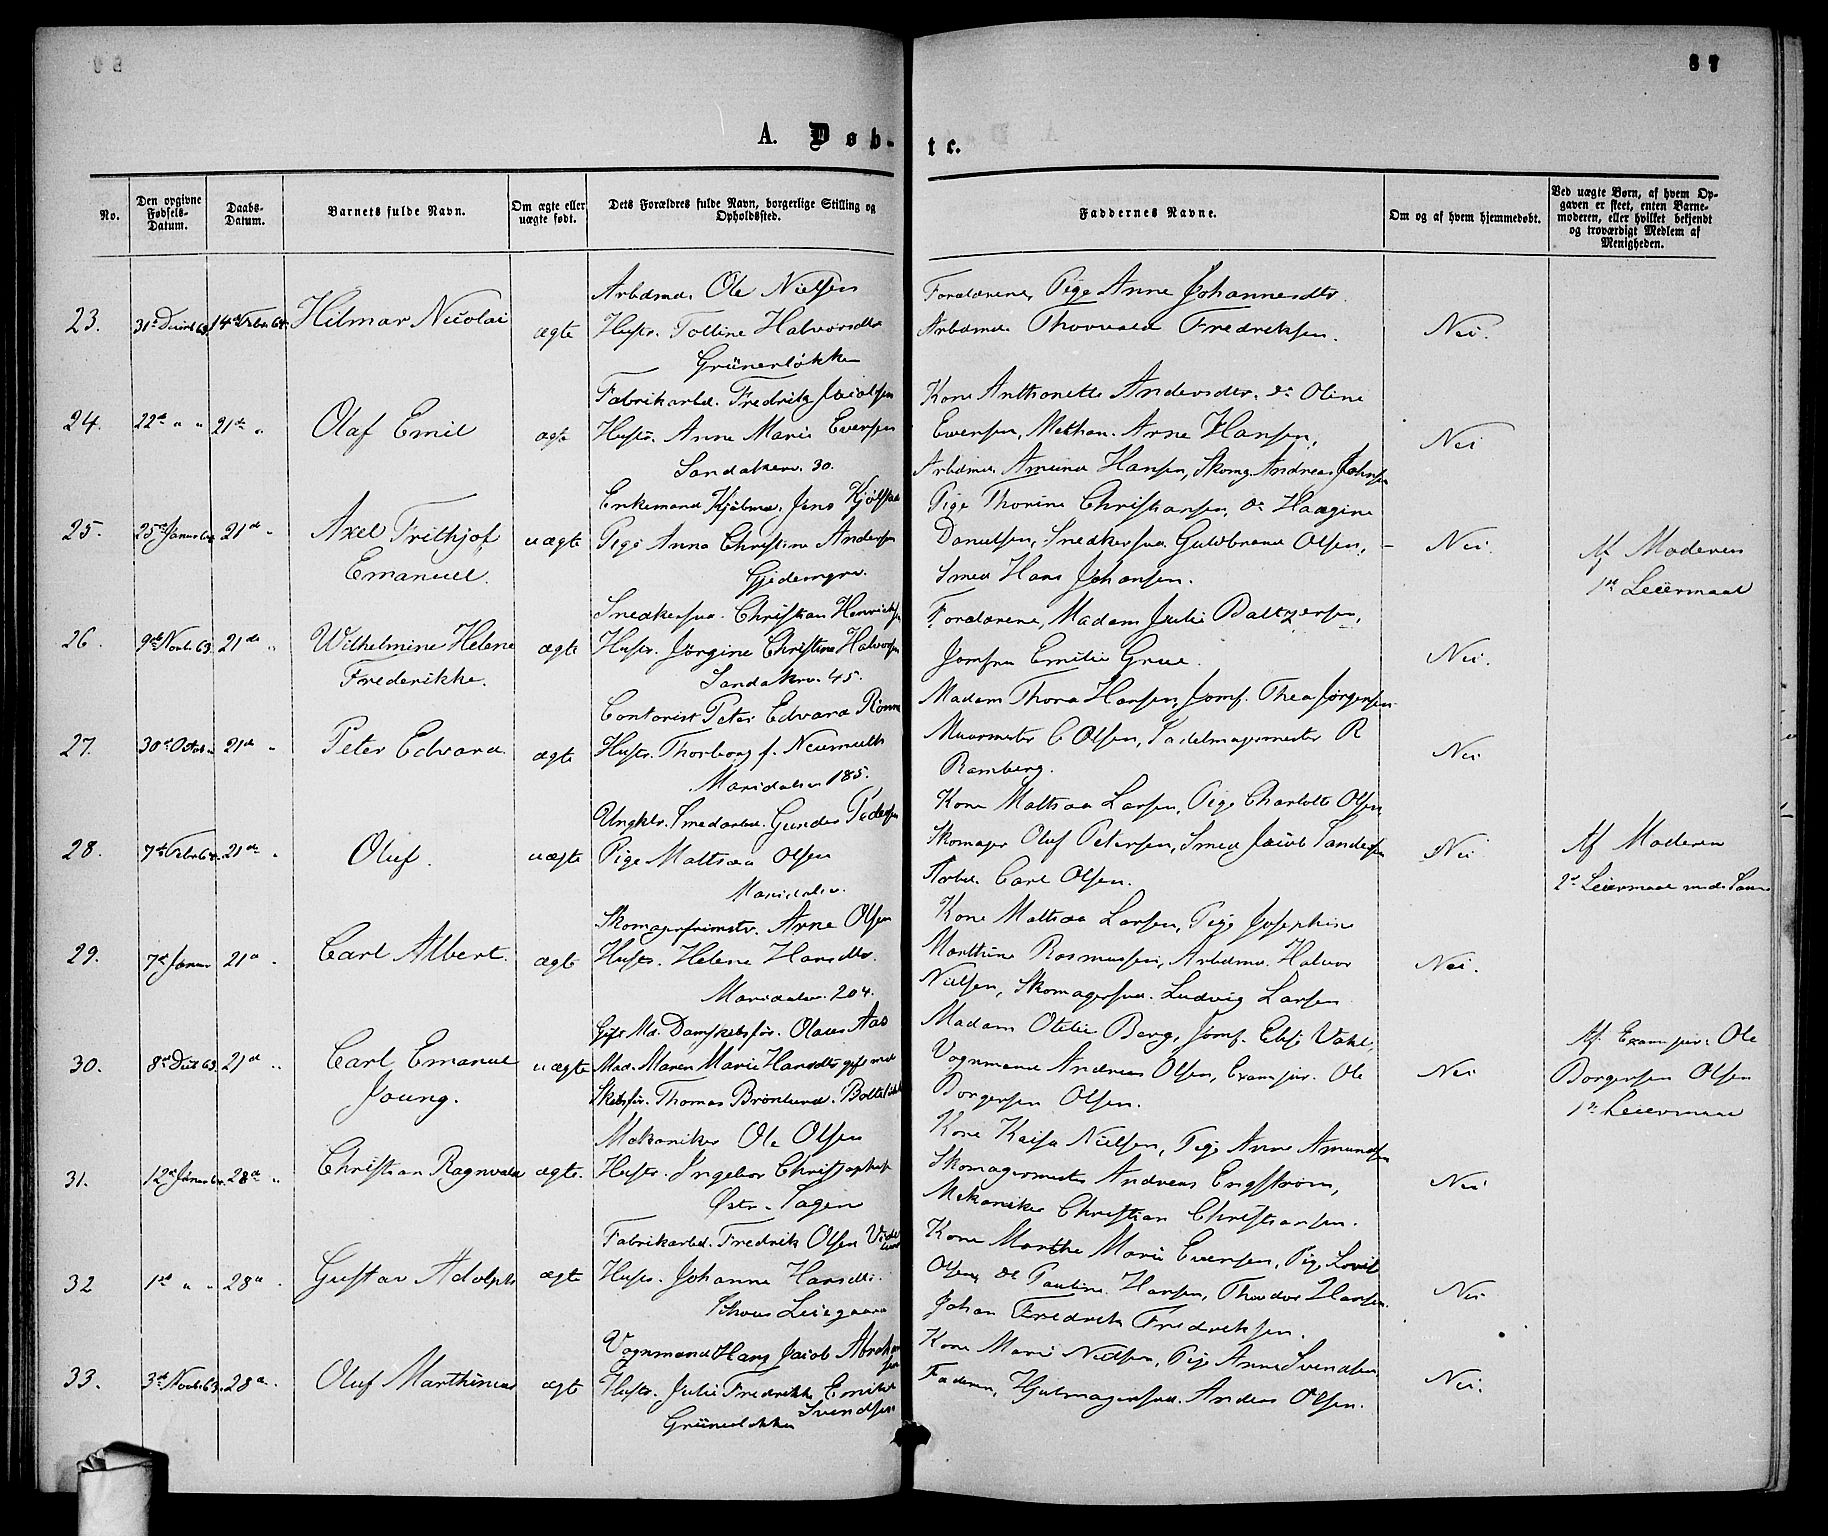 87
A. Døb-
te.
No.
Den opgivne Fødsels-Datum.
Daabs-Datum.
Barnets fulde Navn.
Om ægte eller uægte født.
Dets Forældres fulde Navn, borgerlige Stilling og Opholdssted.
Faddernes Navne.
Om og af hvem hjemmedøbt.
Ved uægte Børn, af hvem Op-
gaven er skeet, enten Barne-
moderen, eller hvilket bekjendt
og troværdigt Medlem af
Menigheden.
23.
Hilmar Nicolai
ægte
Arbdmd. Ole Nielsen
Hustr. Tolline Halvorsdtr
Grünerløkken
Forældrene, Pige Anne Johannesdtr.
Arbdmd. Thorvald Fredriksen.
Nei.
24.
22de " " 21de "
Olaf Emil
ægte
Fabrikarbd. Fredrik
Hustr. Anne Marie Evensen
Sandakerv. 30.
Kone Anthonette Andersdtr. do Oline
Evensen, Mekhan. Arne Hansen,
Arbdmd. Amund Hansen, Skomg. Andreas Johnsen
Nei
25.
25de Januar 64 21de "
Axel Frithjof
Emanuel.
uægte
Enkemand Kjølmd. Jens
Pige Anna Christine Andersen
Gjedemyrv.
Pige Thorine Christiansen, do Haagine
Danielsen, Snedkersvd. Guldbrand Olsen,
Smed Hans Johansen.
Nei.
Af Moderen
1ste Leiermaal
26.
9de Novbr 63. 21de "
Wilhelmine Helene
Frederikke.
ægte
Snedkersvd. Christian Henriksen
Hustr. Jørgine Christine Halvorsen
Sandakerv. 45.
Forældrene, Madam Julie Baltzersen,
Jomfru Emilie Grue.
Nei.
27.
30te Octob " 21de "
Peter Edvard
ægte
Contorist Peter Edvard Rønne
Hustr. Thorborg f. Neumuth
Maridalsv 185.
Madam Thora Hansen, Jomf. Thea Jørgensen
Muurmester C Olsen, Sadelmagermester R
Ramberg.
Nei
28.
7de Febr 64. 21de "
Oluf.
uægte
Ungkl. Smedarbd. Gunder Pedersen
Pige Mathea Olsen
Maridalsv.
Kone Mathea Larsen, Pige Charlotte Olsen,
Skomager Oluf Petersen, Smed Jacob Sandersen
Arbd. Carl Olsen.
Nei
Af Moderen
2det Leiermaal med Samme
29.
7de Januar 21de "
Carl Albert.
ægte
Arne Olsen
Hustr. Helene Hansdtr.
Maridalsv. 204.
Kone Mathea Larsen, Pige Josephine
Marthine Rasmussen, Arbdmd. Halvor
Nielsen, Skomagersvd. Ludvig Larsen
Nei.
30.
8de Decbr 63. 21de "
Carl Emanuel
Joung.
uægte
Gift Md. Dampskibsfør. Olaus Aas
Mad. Maren Marie Hansdtr gift med
Skibsfør. Thomas Brønlund.
Madam Otilie Berg, Jomf. Elise Vahl,
Vognmand Andreas Olsen, Exam. jur. Ole
Borgersen Olsen.
Nei
Af Exam jur. Ole
Borgersen Olsen
1ste Leiermaal
31.
12te Januar 64. 28de "
Christian Ragnvald
ægte.
Mekaniker Ole Olsen
Hustr. Ingebor
Østr. Sagen
Kone Kaisa Nielsen, Pige Anne Amundsen
Skomagermester Andreas Engstrøm,
Mekaniker Christian Christiansen.
Nei
32
1ste " " 28de "
Gustav Adolph
ægte
Fabrikarbd. Fredrik Olsen
Hustr. Johanne Hansdtr.
Kone Marthe Marie Evensen, Pige Lovise
Olsen, do Pauline Hansen, Theodor Hansen.
Johan Fredrik Fredriksen.
Nei
33.
3de Novbr 63. 28de
Oluf Marthinius
ægte
Vognmand Hans Jacob Abraham
sen
Hustr. Julie Fredrikke Emilie
Svendsen
Grünerløkken
Kone Marie Nielsen, Pige Anne Svendsen,
Faderen, Hjulmagersvd. Anders Olsen.
Nei.